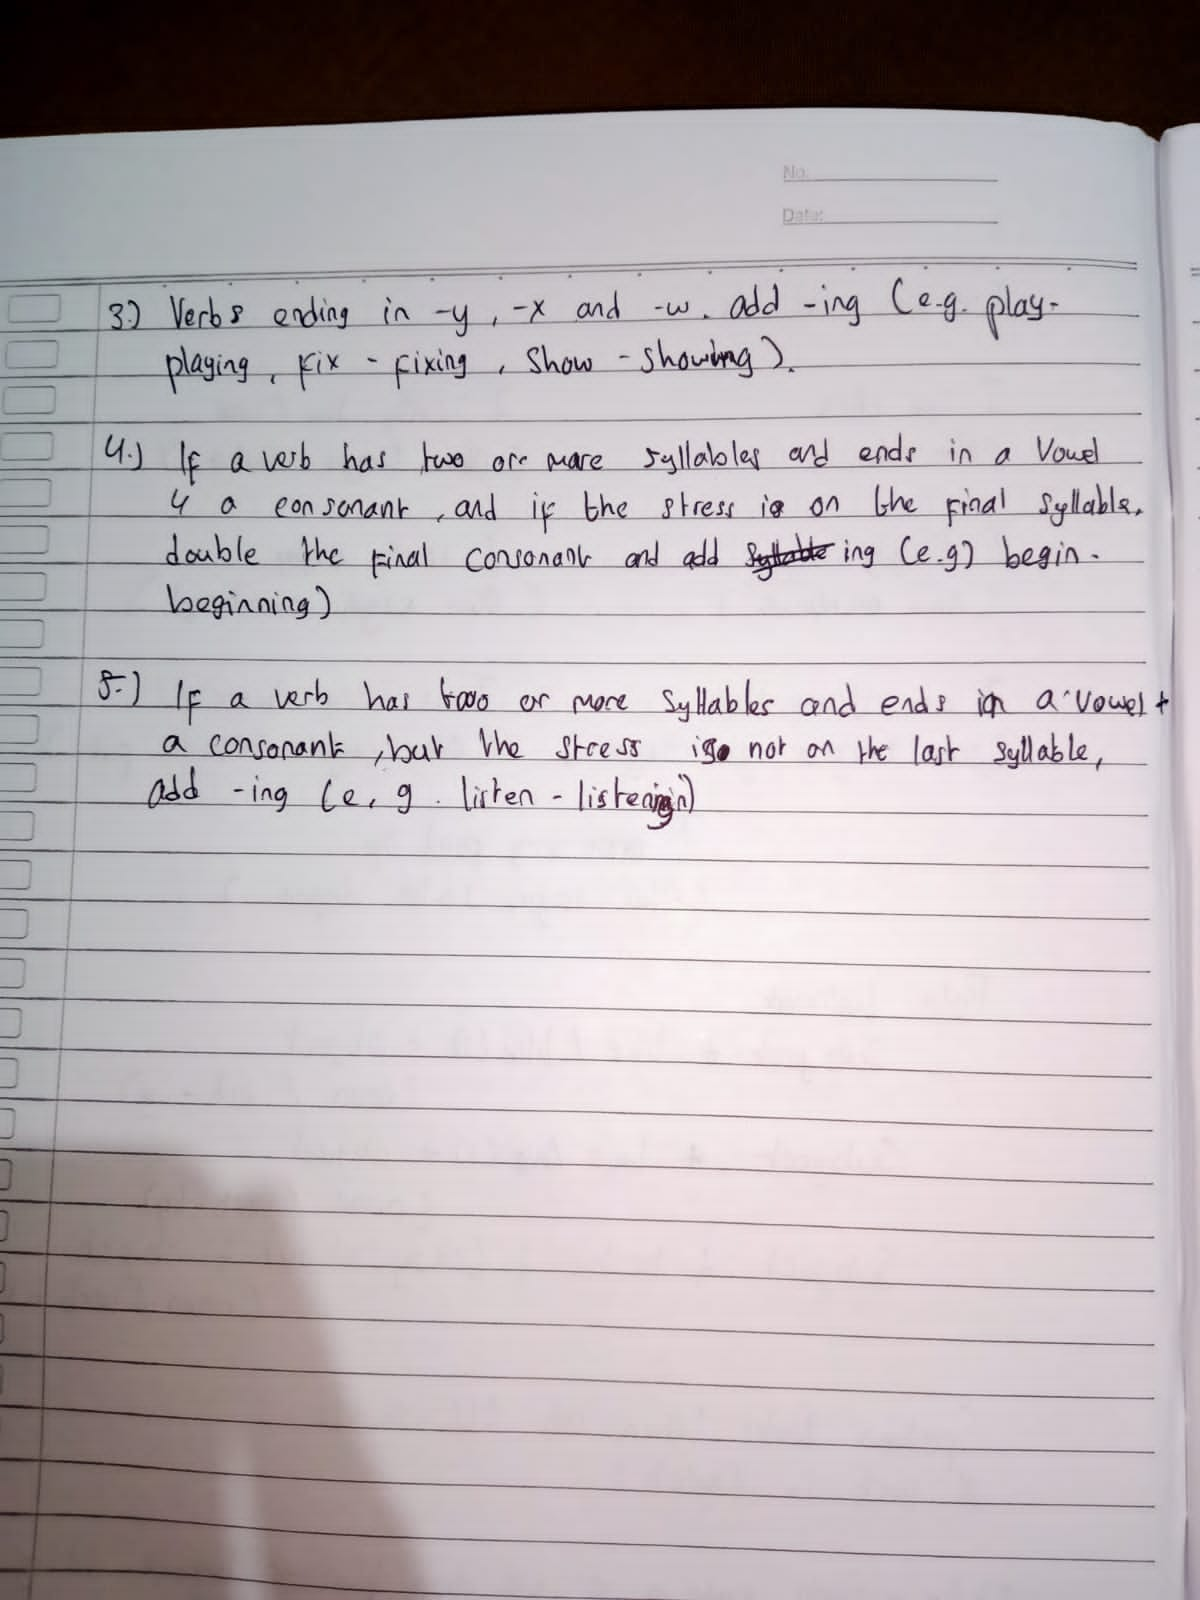 No.
Date:
3.) Verbs ending in -y, -x and -w. add -ing (e.g. play-
playing, fix - fixing, show - showing).
4.) If a verb has two or more syllables and ends in a vowel
4 a consonant, and if the stress is on the final syllable,
double the final consonant and add ing (e.g) begin -
beginning)
5.) If a verb has two or more syllables and ends in a vowel +
a consonant, but the stress is not on the last syllable,
add -ing (e.g. listen -